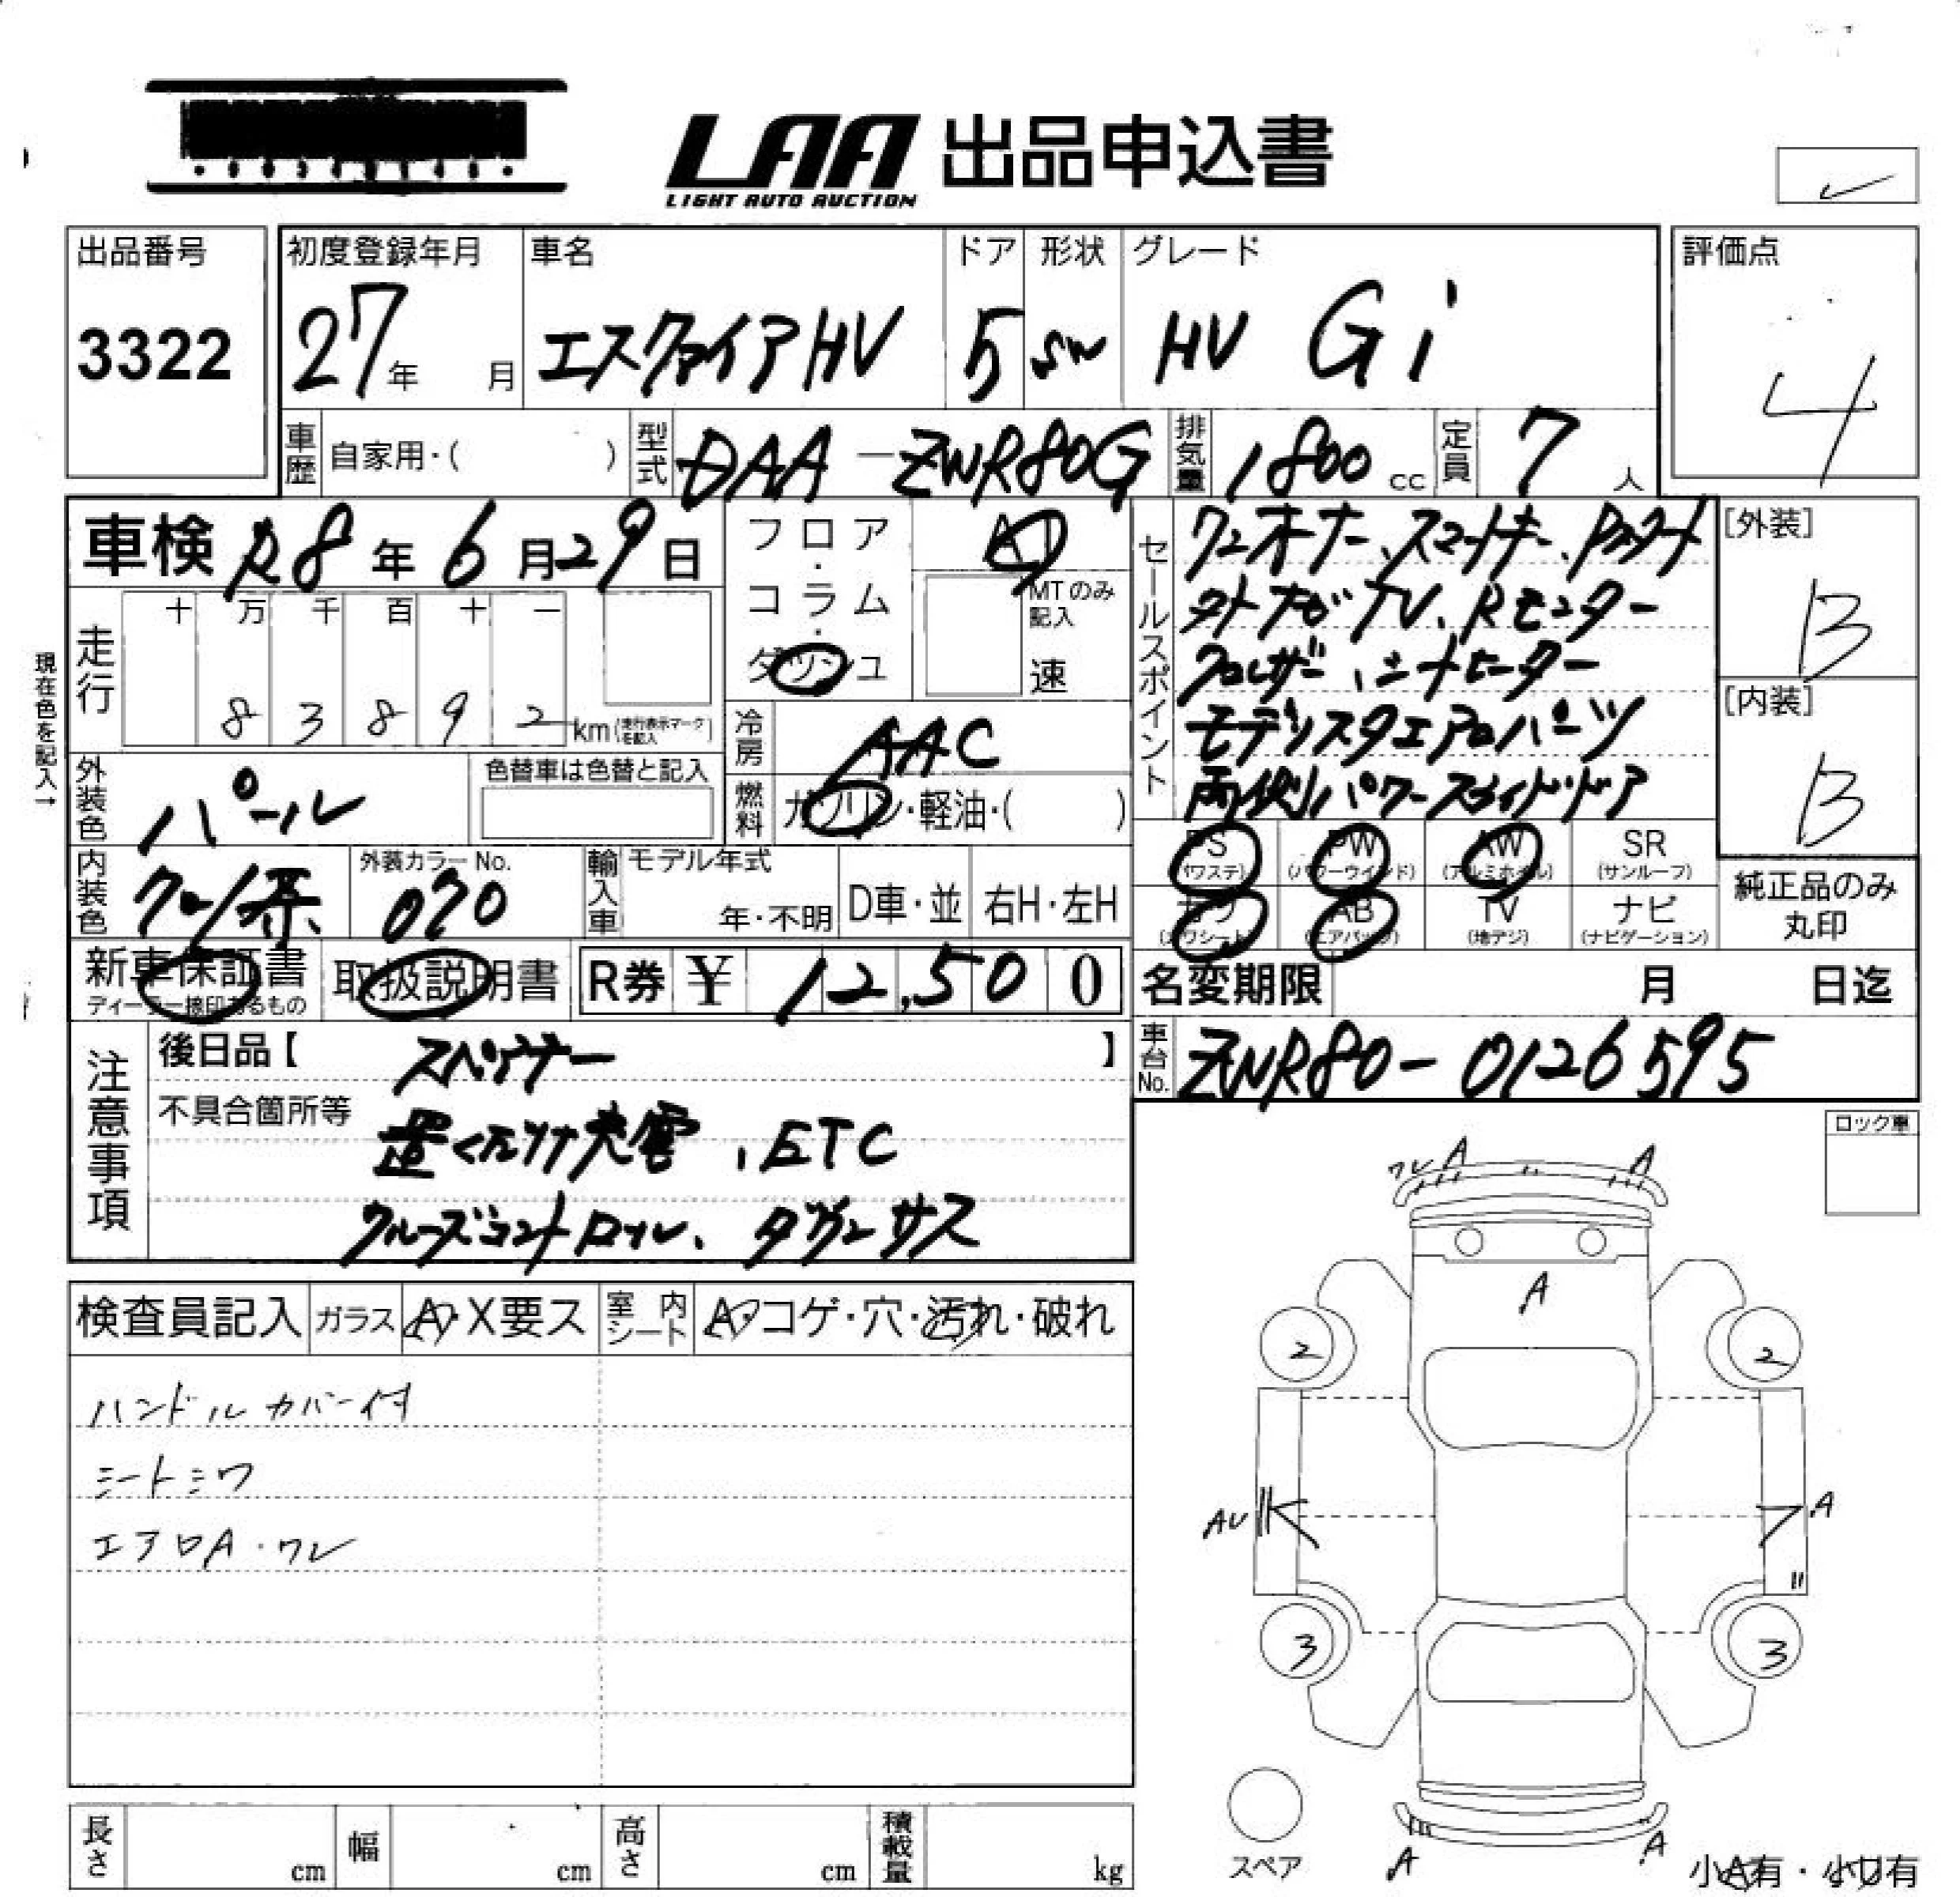 LAA 出品申込書
LIGHT AUTO AUCTION
出品番号
3322
初度登録年月
27年 月
車名
エスクァイアHV
ドア
5
形状
SW
グレード
HV Gi
評価点
4
車歴 自家用・( )
型式 DAA-ZWR80G
排気量 1800 cc
定員 7 人
車検 R8年6月29日
フロア・コラム・ダッシュ
AT
MTのみ記入
速
セールスポイント
ワンオーナー、スマートキー、Pスタート
ナビTV、Rモニター
シートヒーター
モデリスタエアロパーツ
両側パワースライドドア
[外装]
B
[内装]
B
現在色を記入→
走行 十 万 千 百 十 一
8 3 8 9 2 km(走行表示マークを記入)
冷房 AAC
外装色 パール
色替車は色替と記入
燃料 ガソリン・軽油・( )
内装色 クロ系
外装カラーNo.
070
輸入車 モデル年式
年・不明
D車・並
右H・左H
PS (パワステ)
PW (パワーウインド)
AW (アルミホイル)
SR (サンルーフ)
カワ (カワシート)
AB (エアバッグ)
TV (地デジ)
ナビ (ナビゲーション)
純正品のみ丸印
新車保証書
ディーラー捺印あるもの
取扱説明書
R券 ¥ 12,500
名変期限 月 日迄
車台No. ZWR80-0126595
注意事項
後日品【 】
不具合箇所等
置くだけ充電、ETC
クルーズコントロール、ダウンサス
ロック車
検査員記入
ガラス A・X要ス
室内シート A・コゲ・穴・汚れ・破れ
ハンドルカバー付
シートシワ
エアロA・ワレ
ワレ A A
A
2 2
AU A
3 3
スペア
A A
小A有・小U有
長さ cm
幅 cm
高さ cm
積載量 kg